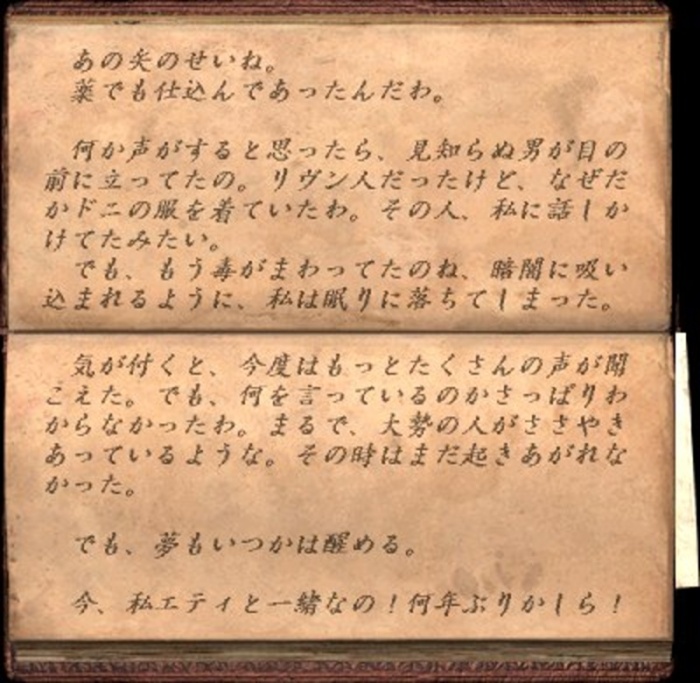 あの矢のせいね。
薬でも仕込んであったんだわ。
何か声がすると思ったら、見知らぬ男が目の
前に立ってたの。リヴン人だったけど、なぜだ
かドニの服を着ていたわ。その人、私に話しか
けてたみたい。
でも、もう毒がまわってたのね、暗闇に吸い
込まれるように、私は眠りに落ちてしまった。
気が付くと、今度はもっとたくさんの声が聞
こえた。でも、何を言っているのかさっぱりわ
からなかったわ。まるで、大勢の人がささやき
あっているような。その時はまだ起きあがれな
かった。
でも、夢もいつかは醒める。
今、私エティと一緒なの！何年ぶりかしら！